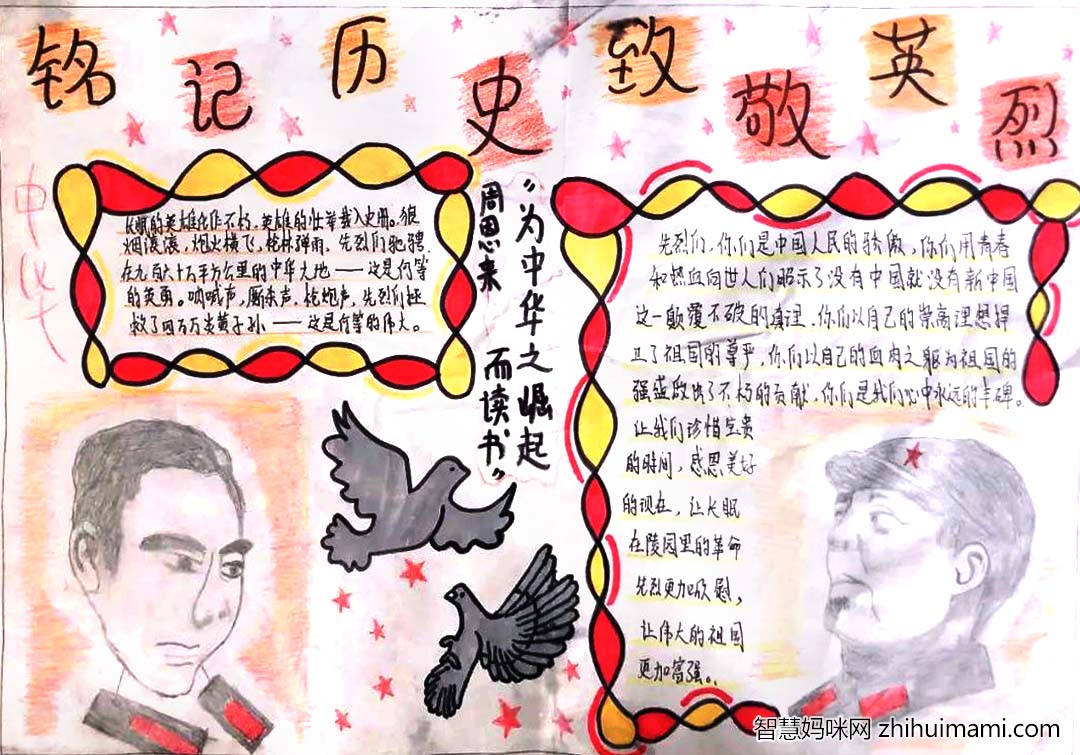 铭记历史 致敬英烈
中华
长眠的英雄伟作不朽，英雄的壮举载入史册。狼
烟滚滚，炮火横飞，枪林弹雨，先烈们驰骋
在九百六十万平方公里的中华大地——这是何等
的英勇。呐喊声，厮杀声，枪炮声，先烈们拯
救了四万万炎黄子孙——这是何等的伟大。
“为中华之崛起
而读书”
周恩来
先烈们，你们是中国人民的骄傲，你们用青春
和热血向世人们昭示了没有中国就没有新中国
这一颠爱不破的真理。你们以自己的崇高理想捍
卫了祖国的尊严，你们以自己的血肉之躯为祖国的
强盛做出了不朽的贡献，你们是我们心中永远的丰碑。
让我们珍惜宝贵
的时间，感恩美好
的现在，让长眠
在陵园里的革命
先烈更加欣慰，
让伟大的祖国
更加富强。
智慧妈咪网 zhihuimami.com